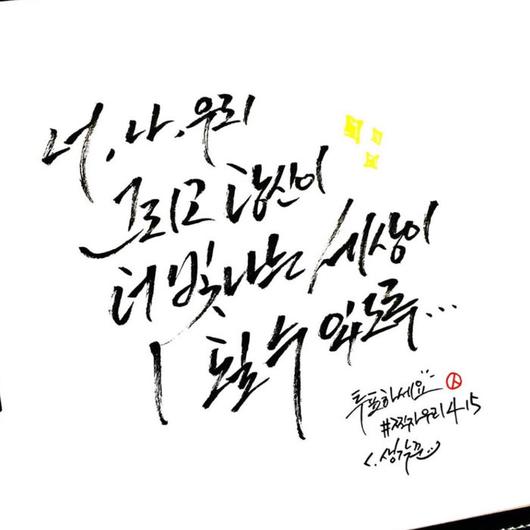 너, 나, 우리
그리고 당신이
더 빛나는 세상이
될 수 있도록...
투표하세요
#찍자우리415
생각꾼